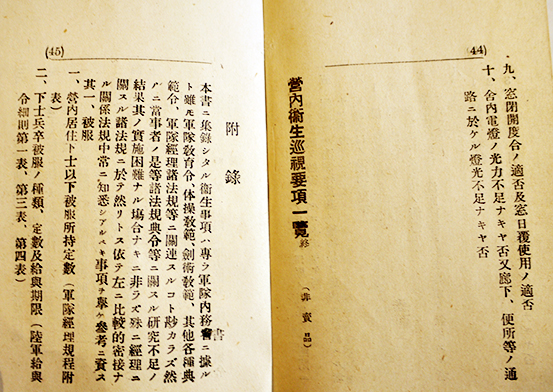 (44)
九、窓閉開度合ノ適否及窓日覆使用ノ適否
十、舍內電燈ノ光力不足ナキヤ否又廊下、便所等ノ通
路ニ於ケル燈光不足ナキヤ否
營內衞生巡視要項一覽終
(非賣品)
(45)
附錄
本書ニ集錄シタル衞生事項ハ專ラ軍隊內務書ニ據ル
ト雖モ軍隊敎育令、体操敎範、劍術敎範、其他各種典
範令、軍隊經理諸法規等ニ關連スルコト尠カラズ然
ルニ當事者ノ是等諸法規典令等ニ關スル硏究不足ノ
結果其ノ實施困難ナル塲合ナキニ非ラズ殊ニ經理ニ
關スル諸法規ニ於テ然リトス依テ左ニ比較的密接ナ
ル關係法規中常ニ知悉シアルベキ事項ヲ擧ケ參考ニ資ス
其一、被服
一、營內居住下士以下被服所持定數(軍隊經理規程附
表)
二、下士兵卒被服ノ種類、定數及給與期限(陸軍給與
令細則第一表、第三表、第四表)